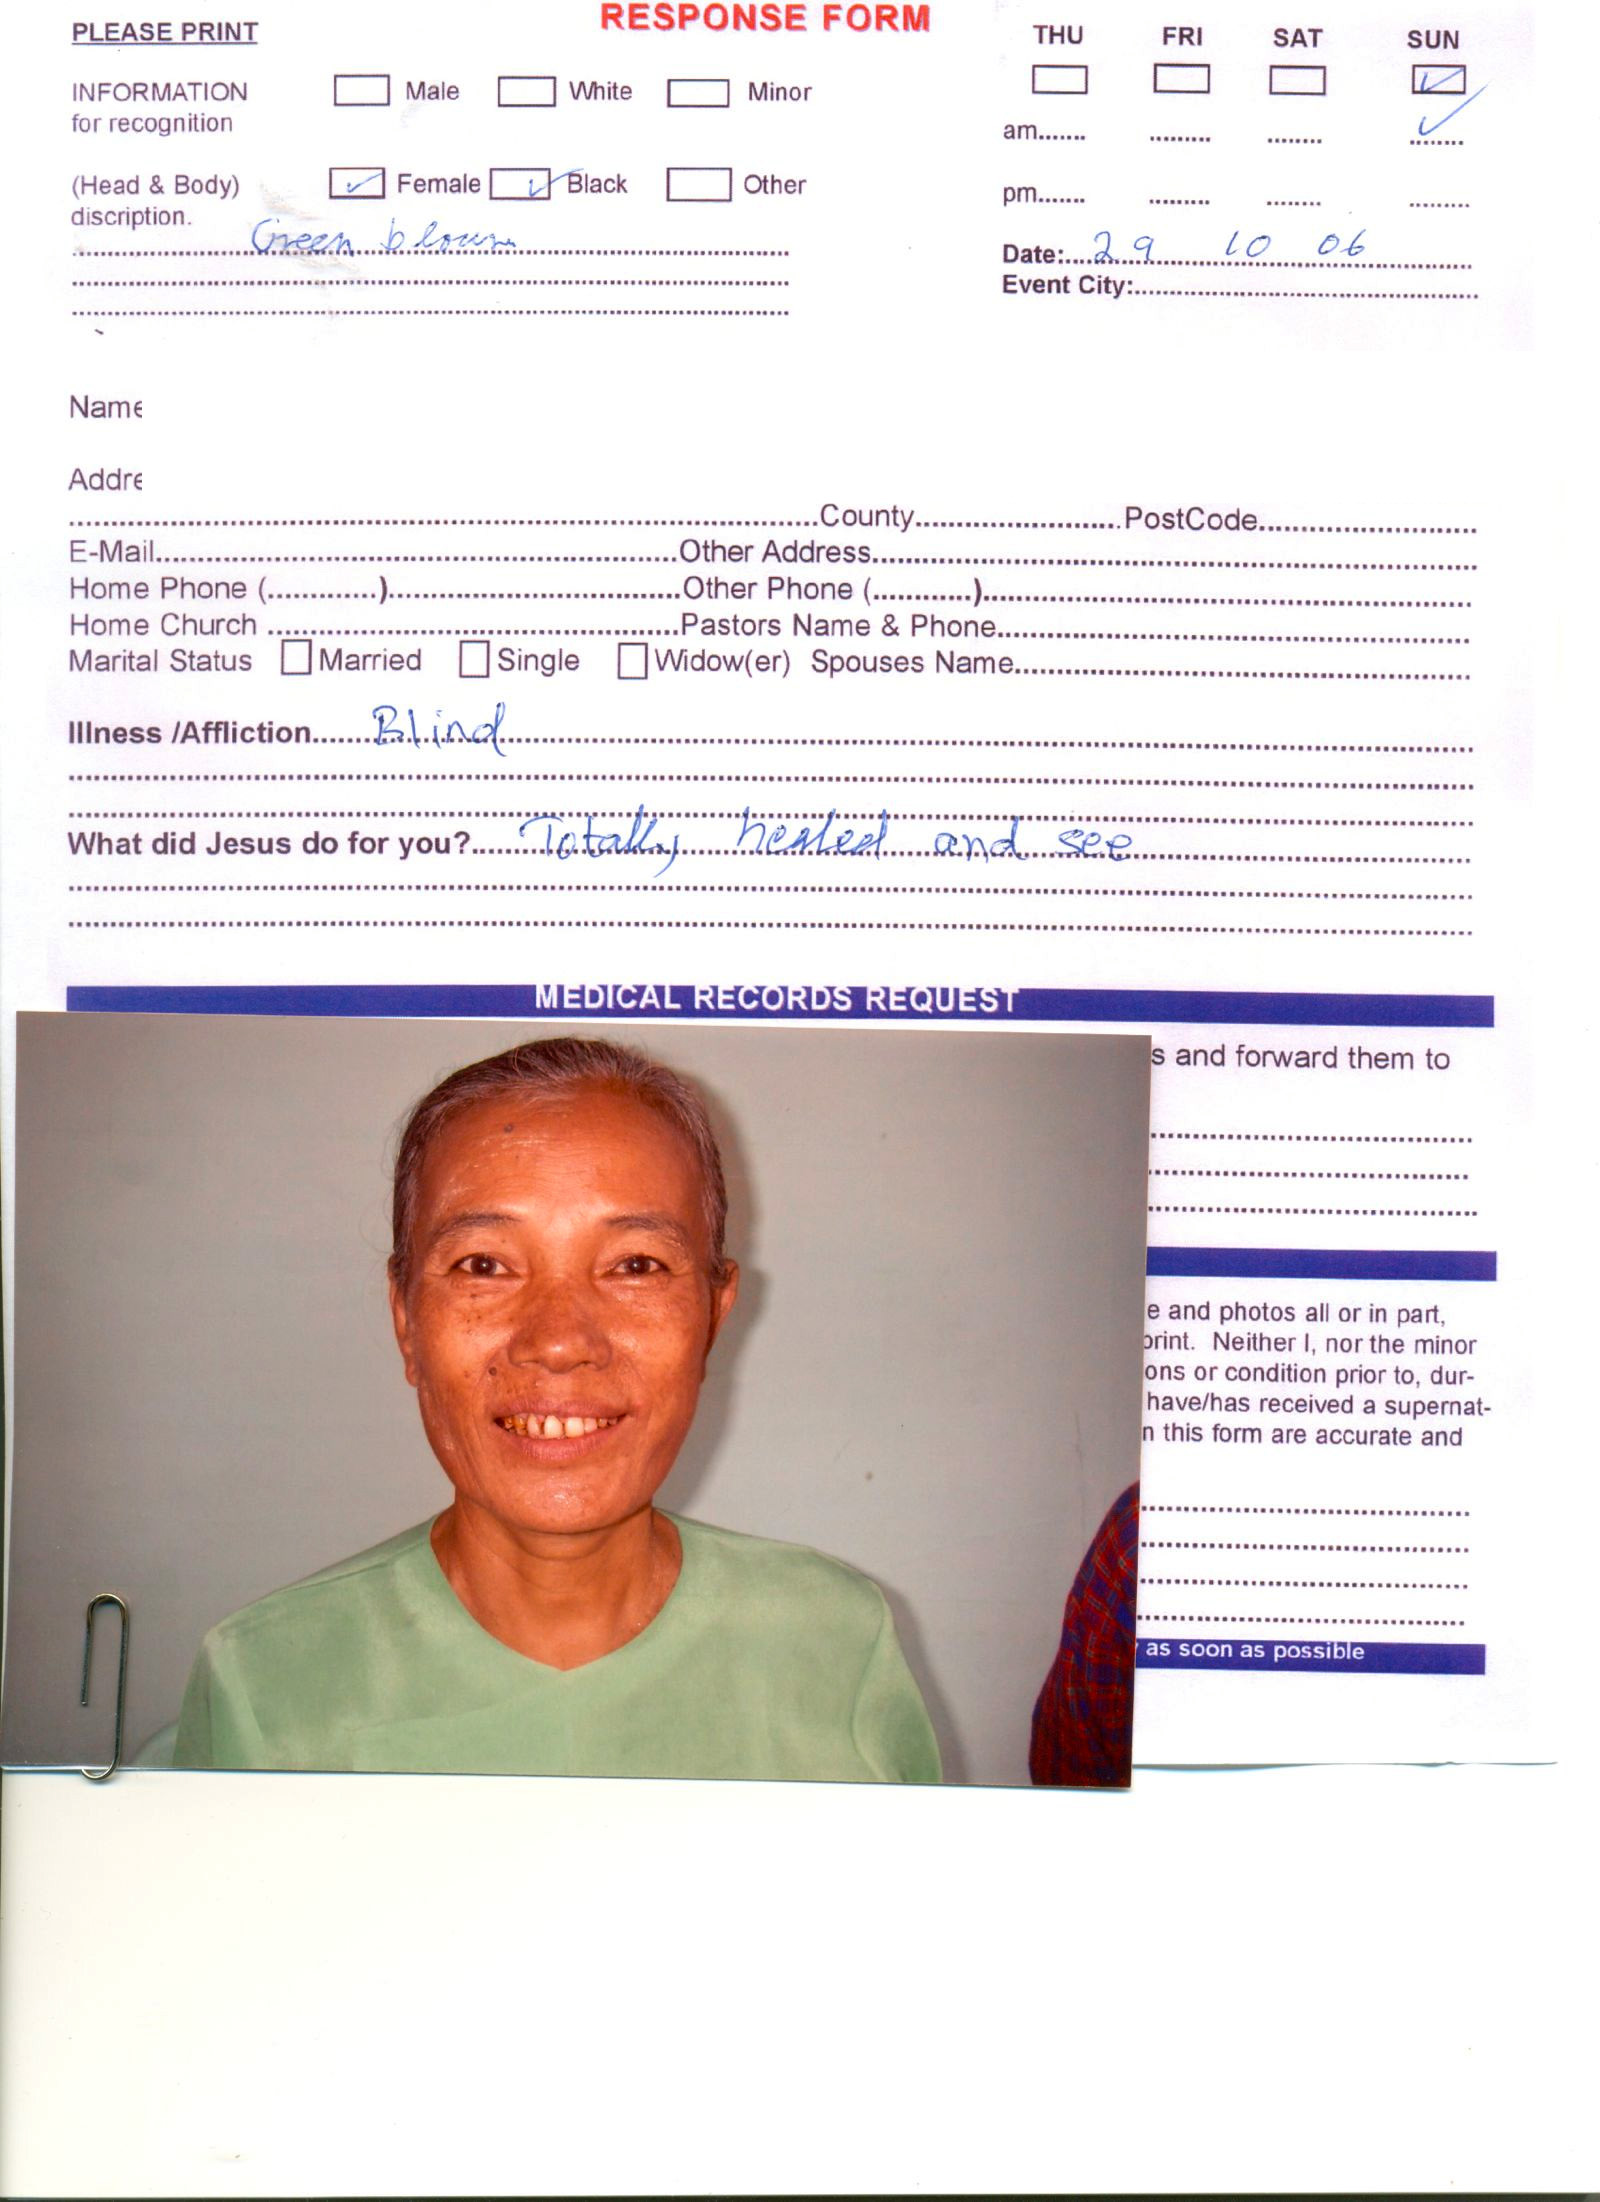 RESPONSE FORM
PLEASE PRINT
THU FRI SAT SUN
INFORMATION Male White Minor
for recognition
am....... ......... ........ ........
(Head & Body) Female Black Other
discription.
pm....... ......... ........ .........
Green blouse
Date:....29 10 06
Event City:
Name
Addre
County PostCode
E-Mail Other Address
Home Phone (.............) Other Phone (............)
Home Church Pastors Name & Phone
Marital Status Married Single Widow(er) Spouses Name
Illness /Affliction Blind
What did Jesus do for you? Totally healed and see
MEDICAL RECORDS REQUEST
s and forward them to
e and photos all or in part,
print. Neither I, nor the minor
ons or condition prior to, dur-
have/has received a supernat-
n this form are accurate and
as soon as possible